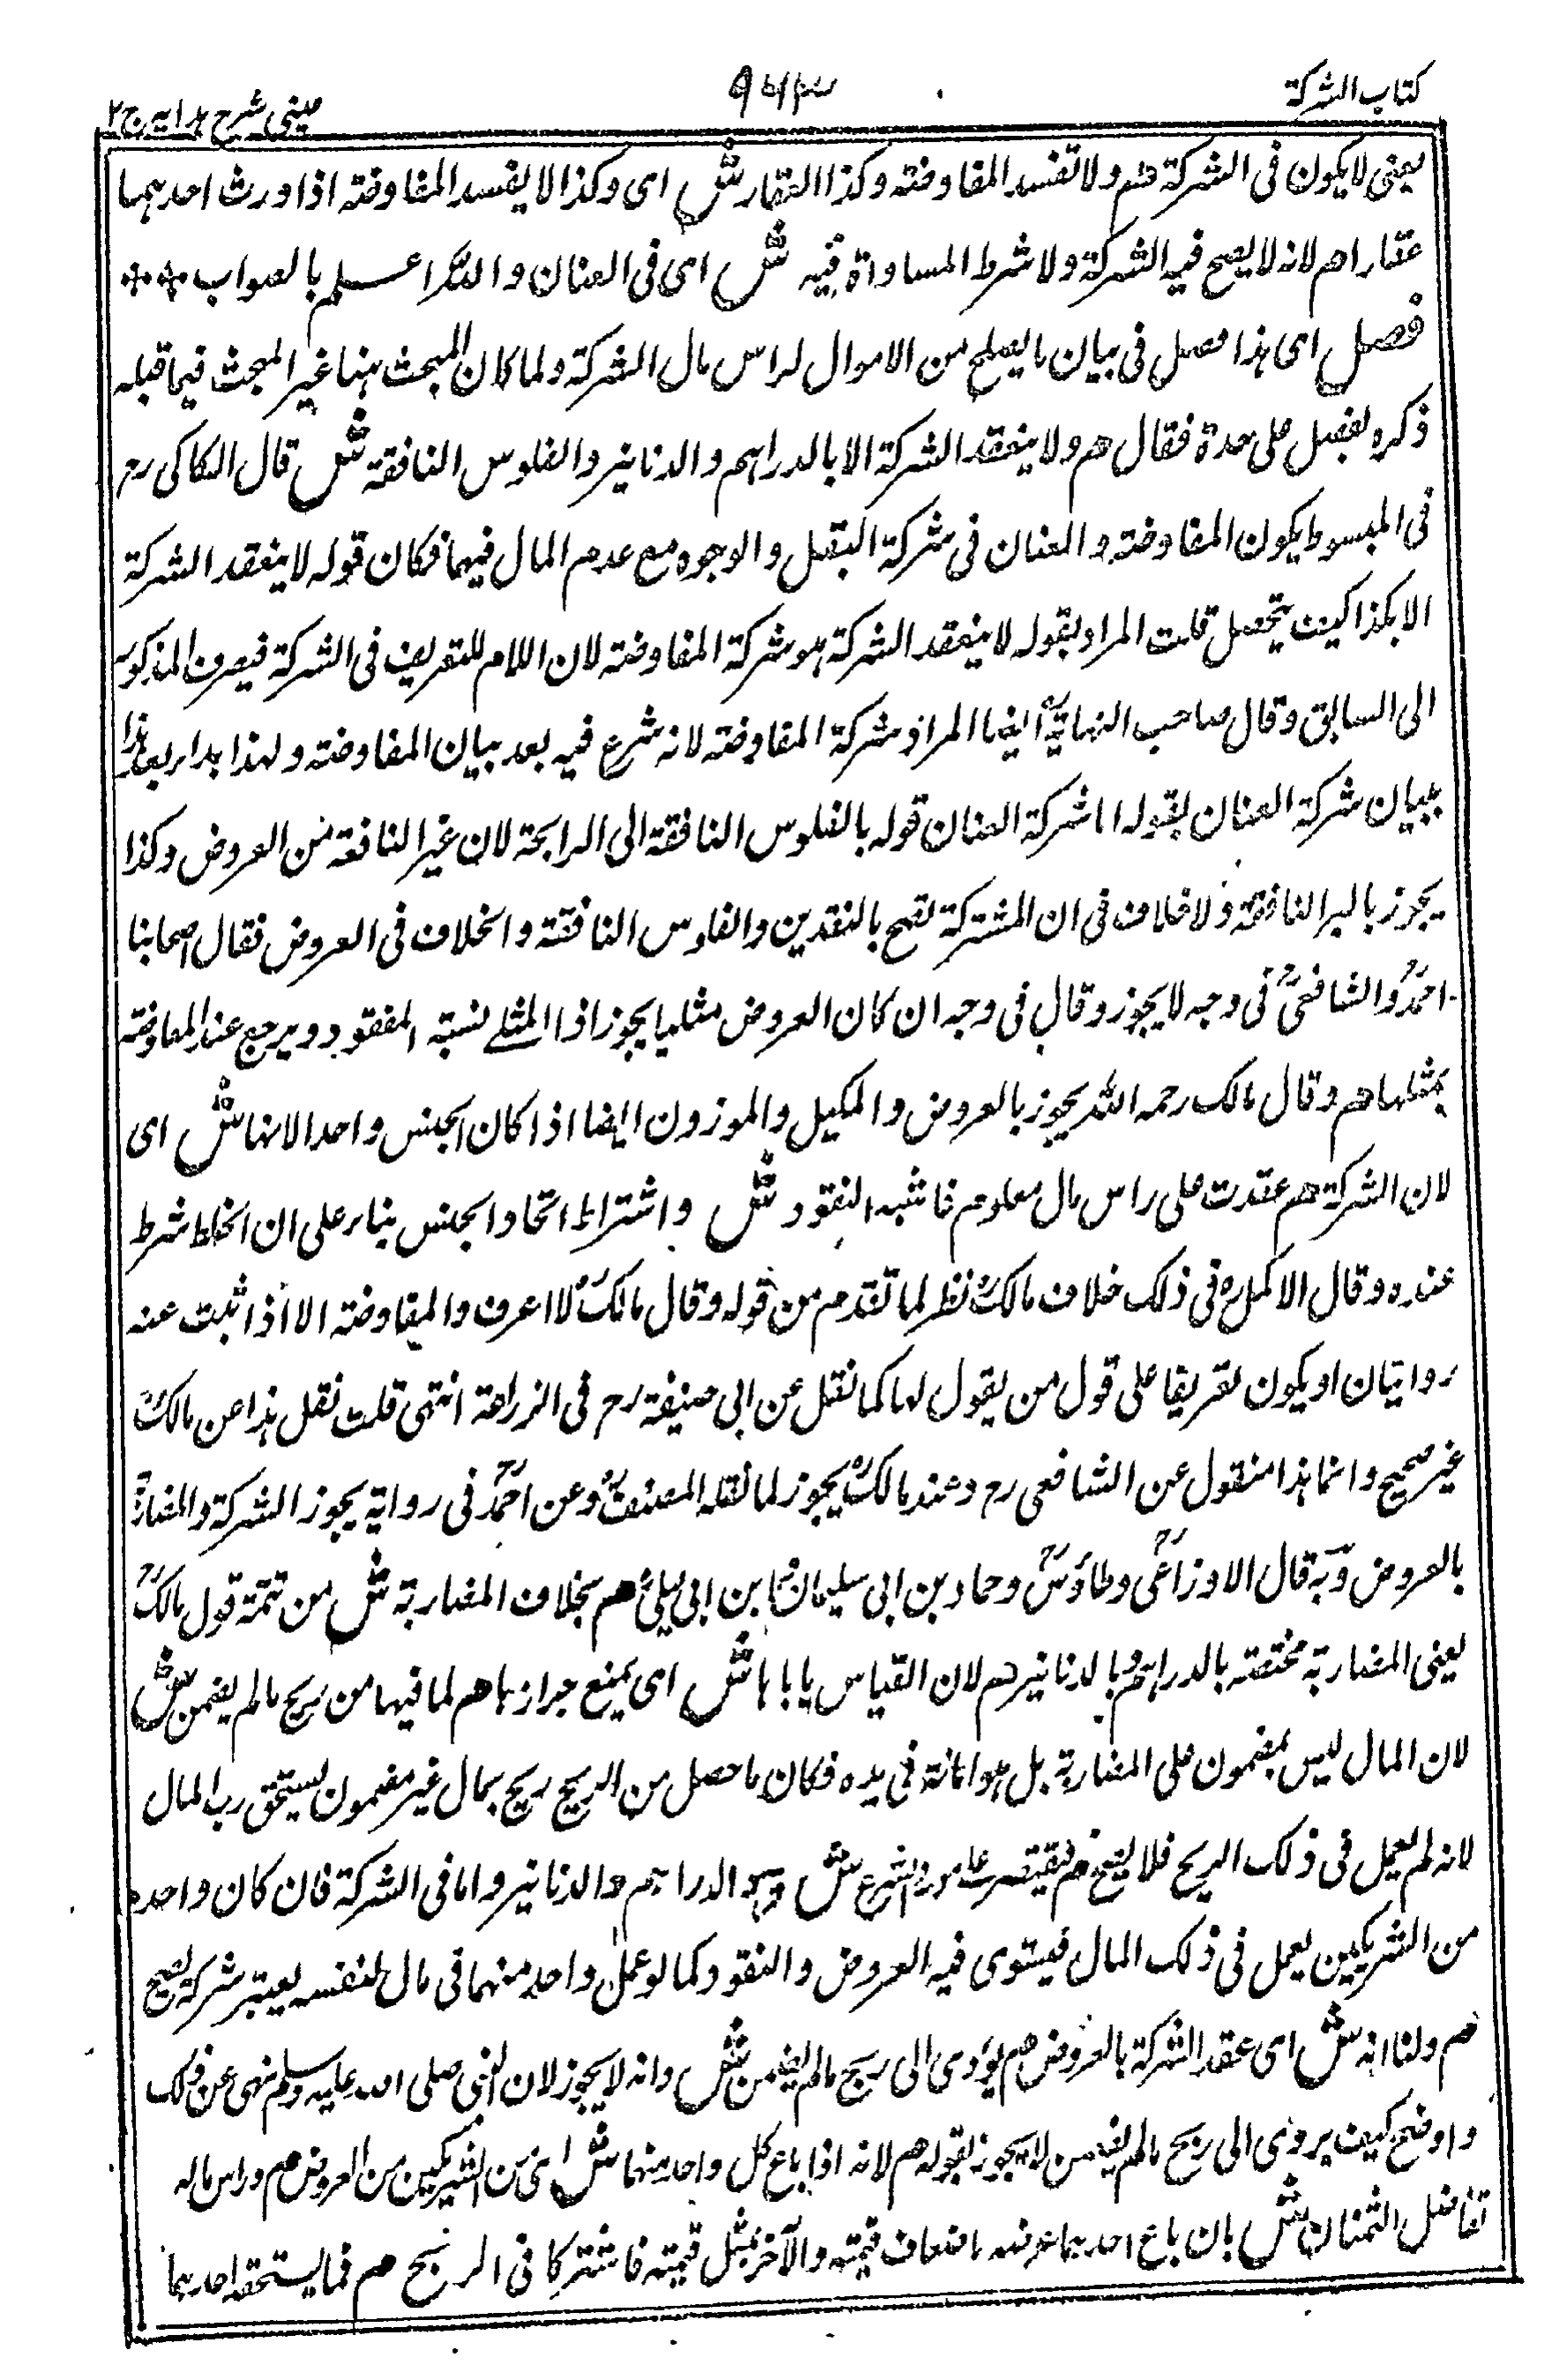 كتاب الشركة
٩٦٣
عينى شرح هدايه ج٢
يعنى لا يكون فى الشركة هم ولا تفسد المفاوضة وكذا العقار ش اى وكذا لا يفسد المفاوضة اذا ورث احدهما
عقارا هم لانه لا يصح فيه الشركة ولا شرط المساواة فيه ش اى فى العنان والله اعلم بالصواب
فصل اى هذا فصل فى بيان ما يصلح من الاموال لراس مال الشركة ولما كان المبحث هنا غير المبحث فيما قبله
ذكره بفصل على حدة فقال هم ولا ينعقد الشركة الا بالدراهم والدنانير والفلوس النافقة ش قال الكاكى رح
فى المبسوط يكون المفاوضة والعنان فى شركة التقبل والوجوه مع عدم المال فيهما فكان قوله لا ينعقد الشركة
الا بكذا كيف يتحصل قلت المراد بقوله لا ينعقد الشركة هو شركة المفاوضة لان اللام للتعريف فى الشركة فيصرف المذكور
الى السابق وقال صاحب النهاية ايضا المراد شركة المفاوضة لانه شرع فيه بعد بيان المفاوضة ولهذا بدا بعد هذا
ببيان شركة العنان بقوله اما شركة العنان قوله بالفلوس النافقة الى الرابحة لان غير النافقة من العروض وكذا
يجوز بالبر النافقة ولا خلاف فى ان المشتركة تصح بالنقدين والفلوس النافقة والخلاف فى العروض فقال اصحابنا
احمدؒ والشافعىؒ فى وجه لا يجوز وقال فى وجه ان كان العروض مثليا يجوز اذا المثلے نسبته المفقود ويرجع عند المفاوضة
بمثلها هم وقال مالك رحمه الله يجوز بالعروض والمكيل والموزون ايضا اذا كان الجنس واحدا لانها ش اى
لان الشركة هم عقدت على راس مال معلوم فاشبه النقود ش واشتراط اتحاد الجنس بناء على ان الخلط شرط
عنده وقال الاكمل رح فى ذلك خلاف مالكؒ نظر لما تقدم من قوله وقال مالكؒ لا اعرف والمفاوضة الا اذا ثبت عنه
روايتان او يكون تفريعا على قول من يقول لها كما نقل عن ابى حنيفة رح فى الزراعة انتهى قلت نقل هذا عن مالكؒ
غير صحيح وانما هذا منقول عن الشافعى رح وعند مالكؒ يجوز لما نقله المصنفؒ وعن احمدؒ فى رواية يجوز الشركة والمضاربة
بالعروض وبه قال الاوزاعىؒ وطاؤسؒ وحماد بن ابى سليمانؒ ابن ابى ليلىؒ هم بخلاف المضاربة ش من تتمة قول مالكؒ
يعنى المضاربة مختصة بالدراهم وبالدنانير هم لان القياس ياباها ش اى يمنع جوازها هم لما فيها من ربح مالم يضمن ش
لان المال ليس بمضمون على المضاربة بل هو امانة فى يده فكان ما حصل من الربح ربح بمال غير مضمون يستحق رب المال
لانه لم يعمل فى ذلك الربح فلا يصح هم فيقتصر على مورد الشرع ش وهو الدراهم والدنانير واما فى الشركة فان كان واحده
من الشريكين يعمل فى ذلك المال فيستوى فيه العروض والنقود كما لو عمل واحد منهما فى مال لنفسه يعتبر شركة يصح
هم ولنا انه ش اى عقد الشركة بالعروض هم يؤدى الى ربح مالم يضمن ش وانه لا يجوز لان النبى صلى الله عليه وسلم نهى عن ذلك
واوضح كيف يردى الى ربح مالم يضمن لا يجوز بقوله هم لانه اذا باع كل واحد منهما ش اى من الشريكين من العروض هم وراس ماله
تفاضل الثمنان ش بان باع احدهما عرضه باضعاف قيمته والآخر بمثل قيمته فاشتركا فى الربح هم فما يستحقه احدهما